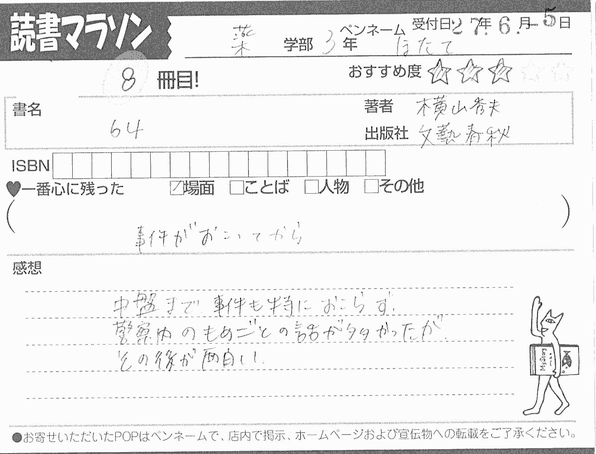 読書マラソン
薬 学部 3年 ペンネーム ほたて 受付日 27年 6.月-5日
8 冊目! おすすめ度 ☆☆☆☆☆
書名 64
著者 横山秀夫
出版社 文藝春秋
ISBN
♥一番心に残った ☑場面 □ことば □人物 □その他
(事件がおこってから)
感想
中盤まで事件も特におこらず、
警察内のもめごとの話が多かったが、
その後が面白い。
●お寄せいただいたPOPはペンネームで、店内で掲示、ホームページおよび宣伝物への転載をご了承ください。